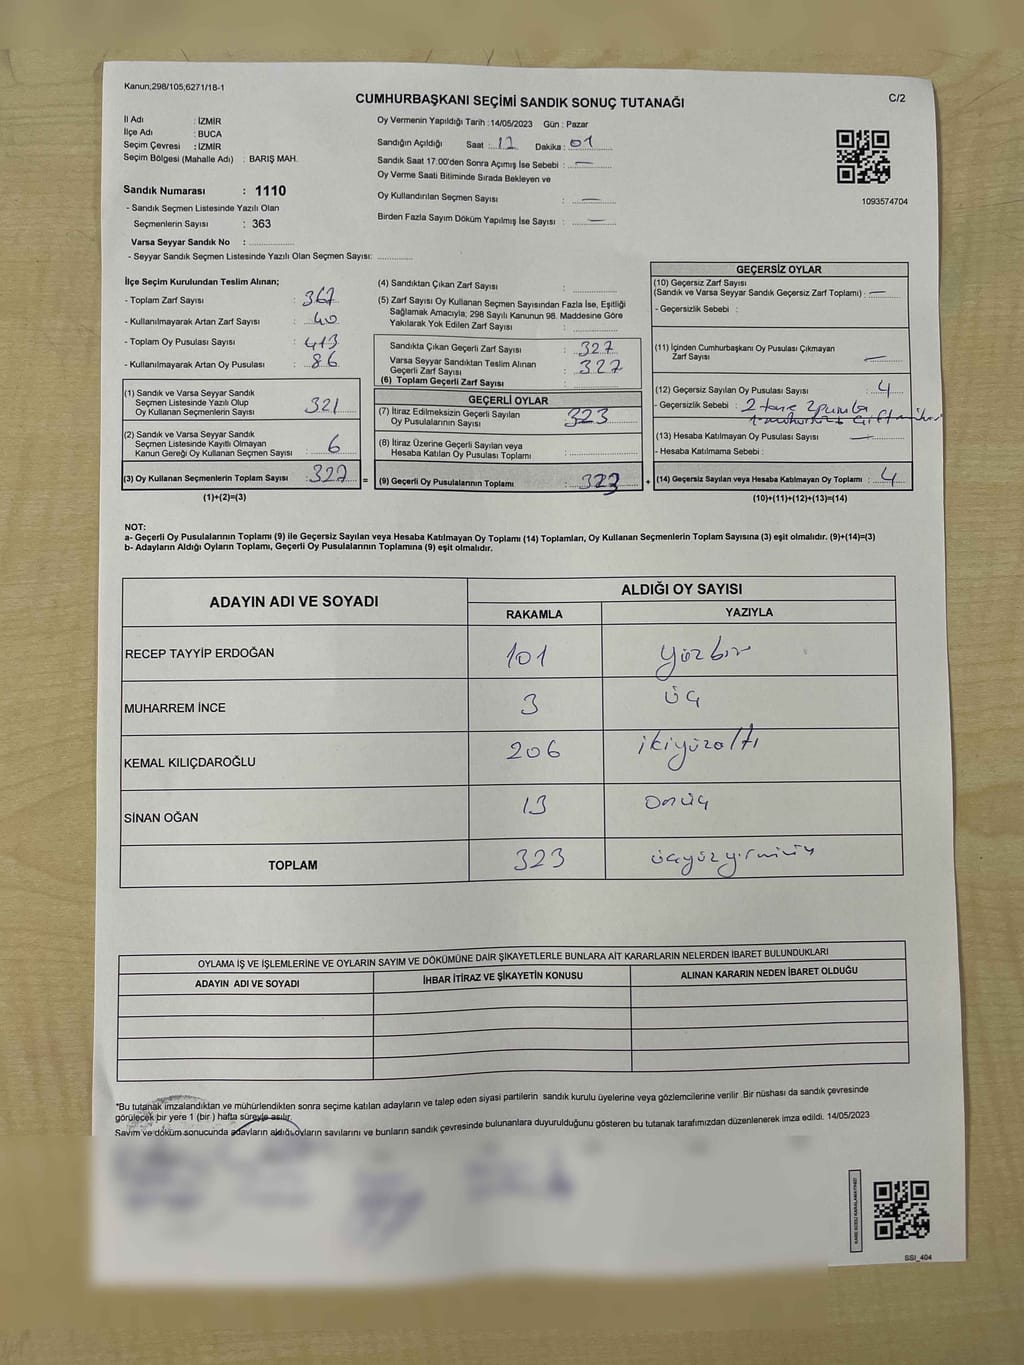 Kanun;298/105,6271/18-1
CUMHURBAŞKANI SEÇİMİ SANDIK SONUÇ TUTANAĞI
C/2
İl Adı : İZMİR
İlçe Adı : BUCA
Seçim Çevresi : İZMİR
Seçim Bölgesi (Mahalle Adı) : BARIŞ MAH.
Sandık Numarası : 1110
- Sandık Seçmen Listesinde Yazılı Olan
Seçmenlerin Sayısı : 363
Varsa Seyyar Sandık No :
- Seyyar Sandık Seçmen Listesinde Yazılı Olan Seçmen Sayısı:
Oy Vermenin Yapıldığı Tarih :14/05/2023 Gün : Pazar
Sandığın Açıldığı Saat : 17 Dakika : 01
Sandık Saat 17:00'den Sonra Açımış İse Sebebi : —
Oy Verme Saati Bitiminde Sırada Bekleyen ve
Oy Kullandırılan Seçmen Sayısı : —
Birden Fazla Sayım Döküm Yapılmış İse Sayısı : —
1093574704
İlçe Seçim Kurulundan Teslim Alınan;
- Toplam Zarf Sayısı : 367
- Kullanılmayarak Artan Zarf Sayısı : 40
- Toplam Oy Pusulası Sayısı : 413
- Kullanılmayarak Artan Oy Pusulası : 86
(1) Sandık ve Varsa Seyyar Sandık
Seçmen Listesinde Yazılı Olup
Oy Kullanan Seçmenlerin Sayısı : 321
(2) Sandık ve Varsa Seyyar Sandık
Seçmen Listesinde Kayıtlı Olmayan
Kanun Gereği Oy Kullanan Seçmen Sayısı : 6
(3) Oy Kullanan Seçmenlerin Toplam Sayısı : 327 =
(1)+(2)=(3)
(4) Sandıktan Çıkan Zarf Sayısı :
(5) Zarf Sayısı Oy Kullanan Seçmen Sayısından Fazla İse, Eşitliği
Sağlamak Amacıyla; 298 Sayılı Kanunun 98. Maddesine Göre
Yakılarak Yok Edilen Zarf Sayısı :
Sandıkta Çıkan Geçerli Zarf Sayısı : 327
Varsa Seyyar Sandıktan Teslim Alınan
Geçerli Zarf Sayısı : 327
(6) Toplam Geçerli Zarf Sayısı :
GEÇERLİ OYLAR
(7) İtiraz Edilmeksizin Geçerli Sayılan
Oy Pusulalarının Sayısı : 323
(8) İtiraz Üzerine Geçerli Sayılan veya
Hesaba Katılan Oy Pusulası Toplamı :
(9) Geçerli Oy Pusulalarının Toplamı : 323 +
GEÇERSİZ OYLAR
(10) Geçersiz Zarf Sayısı
(Sandık ve Varsa Seyyar Sandık Geçersiz Zarf Toplamı) : —
- Geçersizlik Sebebi :
(11) İçinden Cumhurbaşkanı Oy Pusulası Çıkmayan
Zarf Sayısı : —
(12) Geçersiz Sayılan Oy Pusulası Sayısı : 4
- Geçersizlik Sebebi : 2 tane
(13) Hesaba Katılmayan Oy Pusulası Sayısı : —
- Hesaba Katılmama Sebebi :
(14) Geçersiz Sayılan veya Hesaba Katılmayan Oy Toplamı : 4
(10)+(11)+(12)+(13)=(14)
NOT:
a- Geçerli Oy Pusulalarının Toplamı (9) ile Geçersiz Sayılan veya Hesaba Katılmayan Oy Toplamı (14) Toplamları, Oy Kullanan Seçmenlerin Toplam Sayısına (3) eşit olmalıdır. (9)+(14)=(3)
b- Adayların Aldığı Oyların Toplamı, Geçerli Oy Pusulalarının Toplamına (9) eşit olmalıdır.
ADAYIN ADI VE SOYADI ALDIĞI OY SAYISI
RAKAMLA YAZIYLA
RECEP TAYYİP ERDOĞAN 101 yüzbir
MUHARREM İNCE 3 üç
KEMAL KILIÇDAROĞLU 206 ikiyüzaltı
SİNAN OĞAN 13 onüç
TOPLAM 323 üçyüzyirmiüç
OYLAMA İŞ VE İŞLEMLERİNE VE OYLARIN SAYIM VE DÖKÜMÜNE DAİR ŞİKAYETLERLE BUNLARA AİT KARARLARIN NELERDEN İBARET BULUNDUKLARI
ADAYIN ADI VE SOYADI İHBAR İTİRAZ VE ŞİKAYETİN KONUSU ALINAN KARARIN NEDEN İBARET OLDUĞU
*Bu tutanak imzalandıktan ve mühürlendikten sonra seçime katılan adayların ve talep eden siyasi partilerin sandık kurulu üyelerine veya gözlemcilerine verilir. Bir nüshası da sandık çevresinde
görülecek bir yere 1 (bir ) hafta süreyle asılır.
Sayım ve döküm sonucunda adayların aldığı oyların sayılarını ve bunların sandık çevresinde bulunanlara duyurulduğunu gösteren bu tutanak tarafımızdan düzenlenerek imza edildi. 14/05/2023
SSI_404